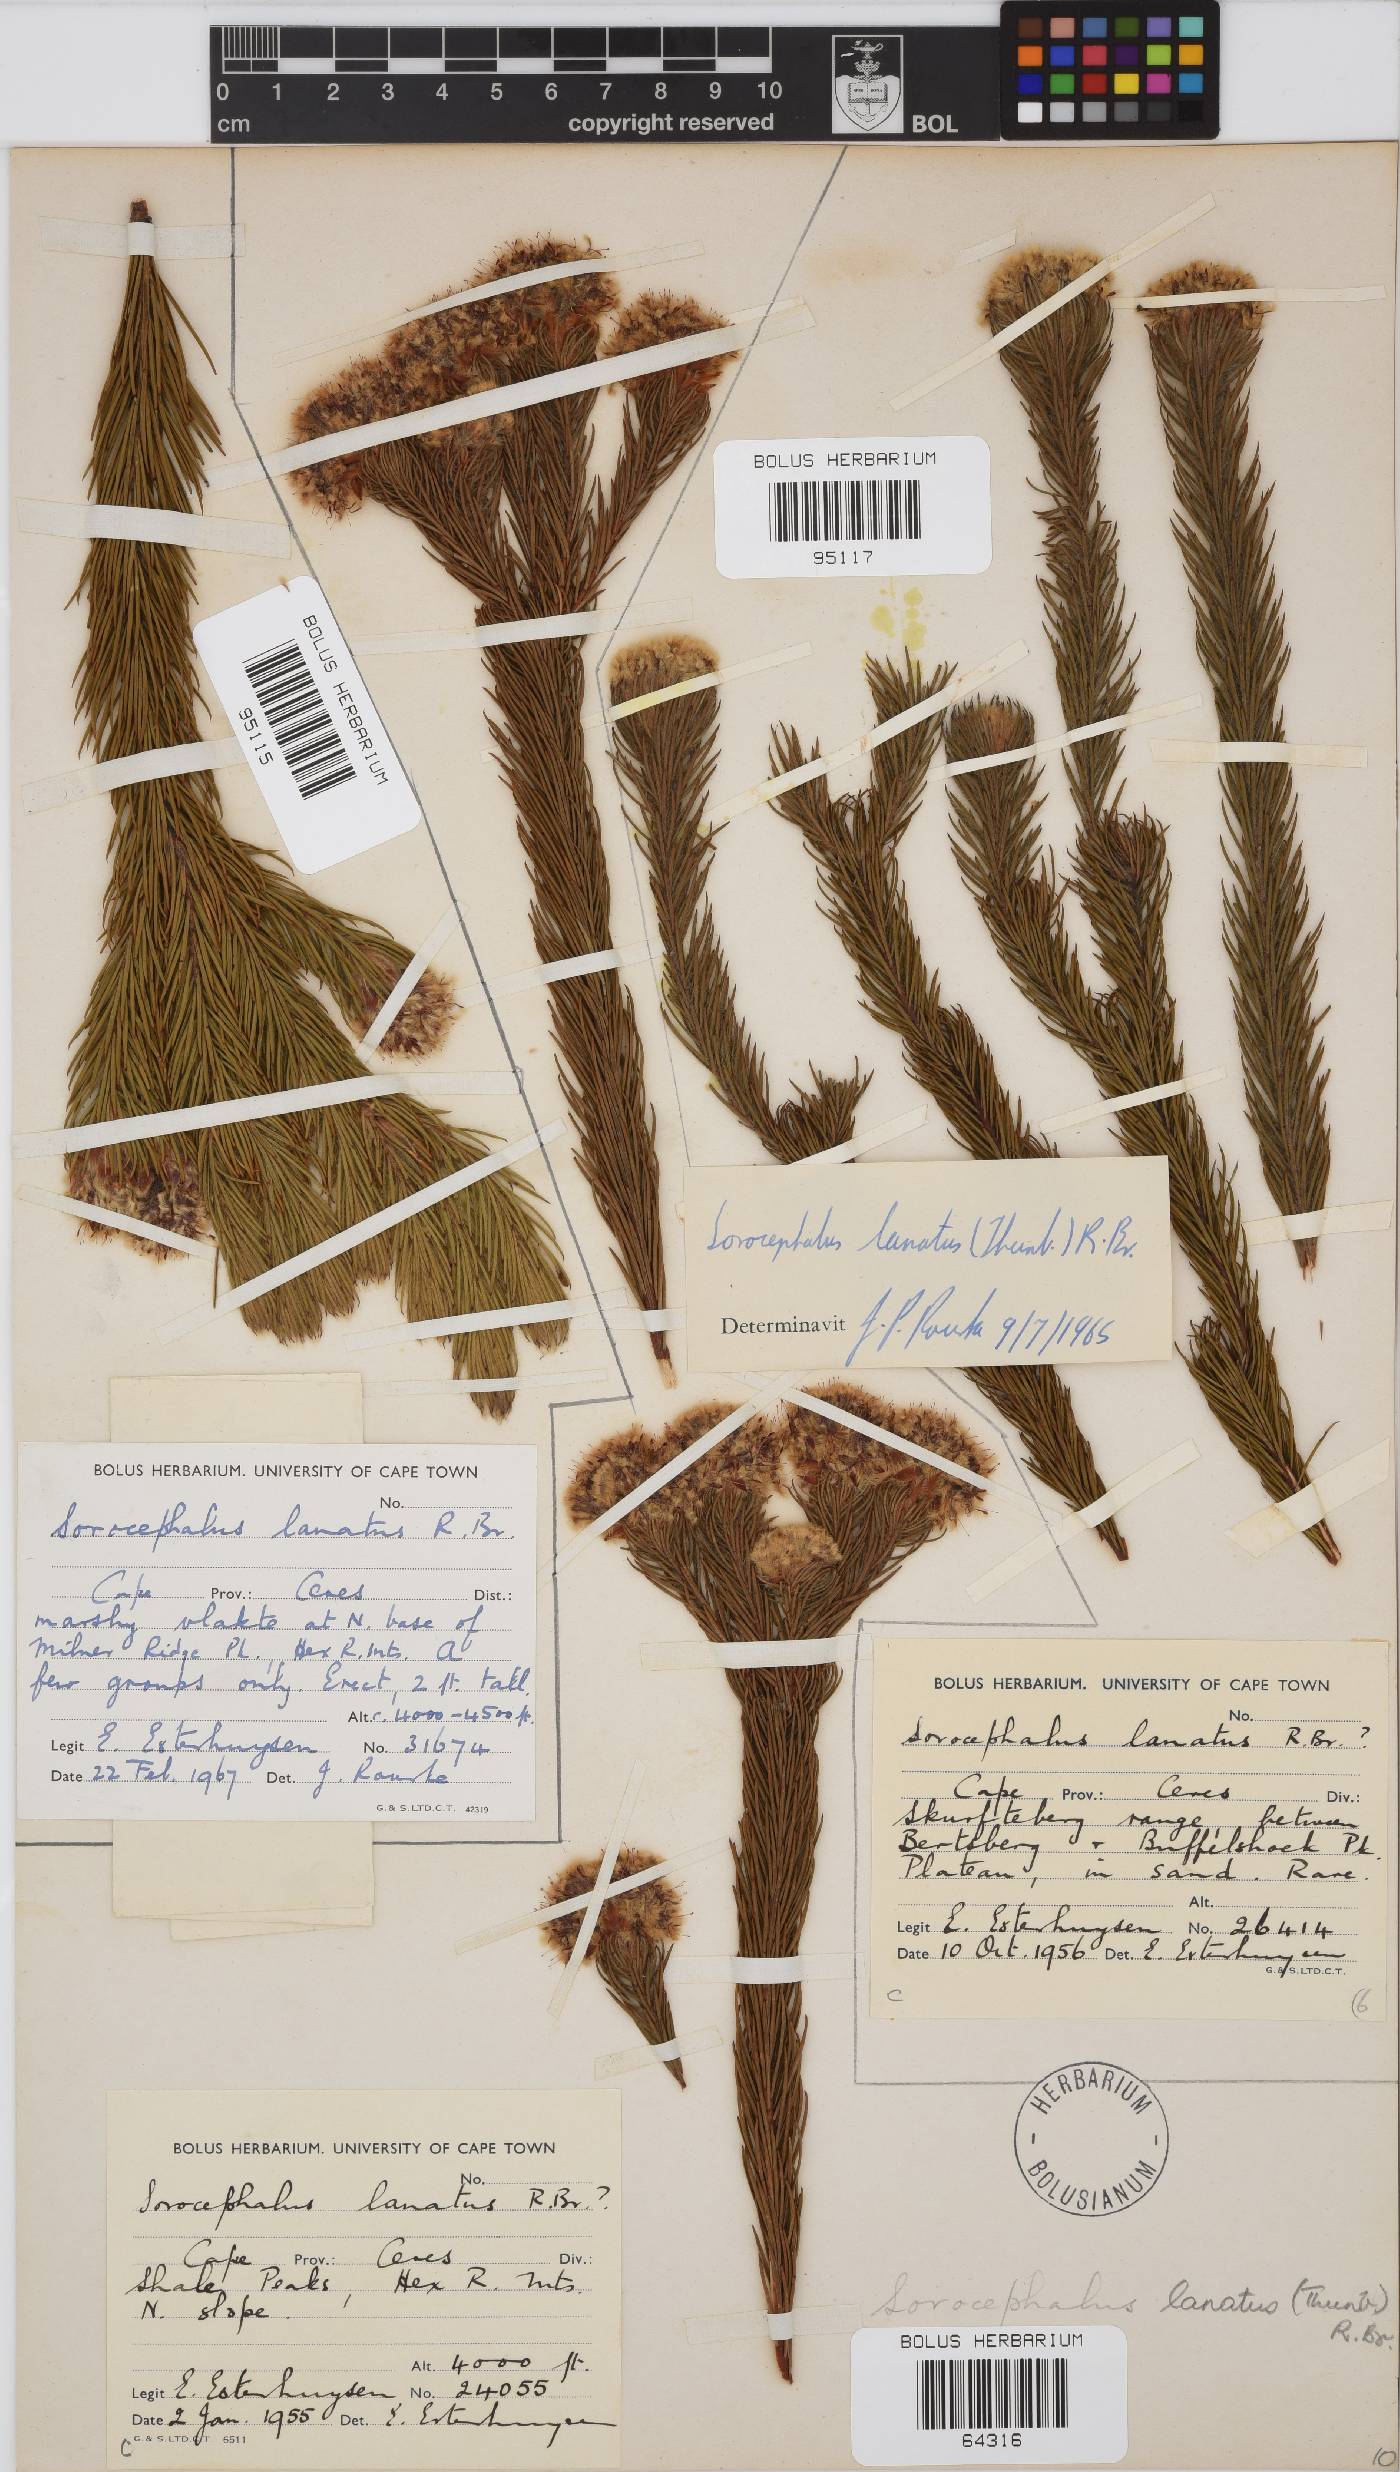 0 1 2 3 4 5 6 7 8 9 10
cm copyright reserved BOL
BOLUS HERBARIUM
95117
BOLUS HERBARIUM
95115
Sorocephalus lanatus (Thunb.) R. Br.
Determinavit J. P. Rourke 9/7/1965
BOLUS HERBARIUM. UNIVERSITY OF CAPE TOWN
No.
Sorocephalus lanatus R. Br.
Cape Prov.: Ceres Dist.:
marshy vlakte at N. base of
Milner Ridge Pk., Hex R. Mts. A
few groups only. Erect, 2 ft. tall.
Alt. c. 4000-4500 ft.
Legit E. Esterhuysen No. 31674
Date 22 Feb. 1967 Det. J. Rourke
G. & S. LTD. C.T. 42319
BOLUS HERBARIUM. UNIVERSITY OF CAPE TOWN
No.
Sorocephalus lanatus R.Br.?
Cape Prov.: Ceres Div.:
Skurfteberg range, between
Bertsberg + Buffelshoek Pk.
Plateau, in sand. Rare.
Alt.
Legit E. Esterhuysen No. 26414
Date 10 Oct. 1956 Det. E. Esterhuysen
G. & S. LTD. C.T.
C (6
HERBARIUM
- BOLUSIANUM -
BOLUS HERBARIUM. UNIVERSITY OF CAPE TOWN
No.
Sorocephalus lanatus R.Br.?
Cape Prov.: Ceres Div.:
Shale Peaks, Hex R. Mts.
N. slope.
Alt. 4000 ft.
Legit E. Esterhuysen No. 24055
Date 2 Jan. 1955 Det. E. Esterhuysen
G. & S. LTD. C.T. 6511
C
Sorocephalus lanatus (Thunb.)
R.Br.
BOLUS HERBARIUM
64316
10